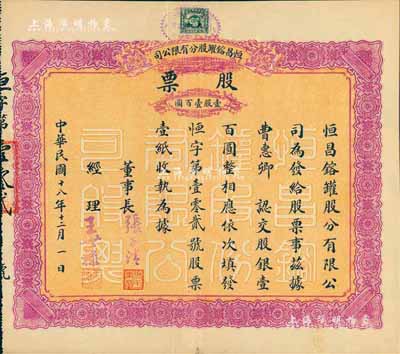 恒昌鎔罐股分有限公司
股票
壹股壹百圓
恒昌鎔罐股分有限公
司為發給股票事茲據
曹惠卿 認交股銀壹
百圓整相應依次填發
恒字第壹零貳號股票
壹紙收執為據
董事長
經理
中華民國十八年十二月一日
恒字第壹零貳號